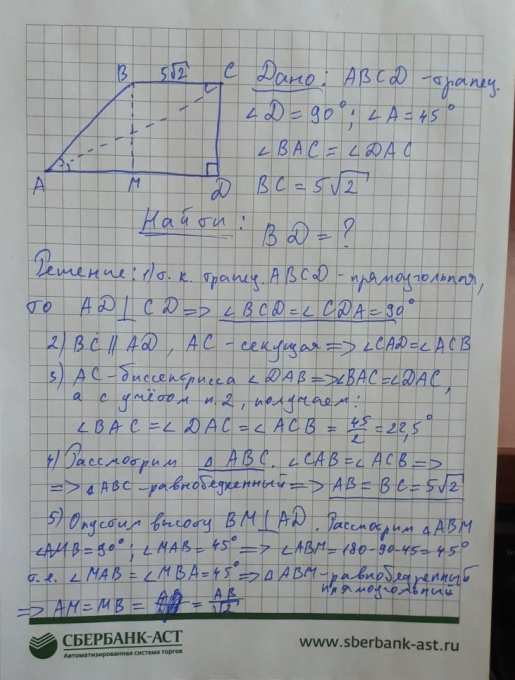 B 5√2 C Дано: ABCD - трапец.
∠D = 90°; ∠A = 45°
∠BAC = ∠DAC
A M D BC = 5√2
Найти: BD = ?
Решение: 1) т. к. трапец. ABCD - прямоугольная,
то AD ⊥ CD => ∠BCD = ∠CDA = 90°
2) BC ∥ AD, AC - секущая => ∠CAD = ∠ACB
3) AC - биссектрисса ∠DAB => ∠BAC = ∠DAC,
а с учётом п.2, получаем:
∠BAC = ∠DAC = ∠ACB = 45/2 = 22,5°
4) Рассмотрим △ABC. ∠CAB = ∠ACB =>
=> △ABC - равнобедренный => AB = BC = 5√2
5) Опустим высоту BM ⊥ AD. Рассмотрим △ABM
∠AMB = 90°; ∠MAB = 45° => ∠ABM = 180-90-45 = 45°
т.е. ∠MAB = ∠MBA = 45° => △ABM - равнобедренный
прямоугольный
=> AM = MB = = AB/√2
СБЕРБАНК-АСТ
Автоматизированная система торгов
www.sberbank-ast.ru